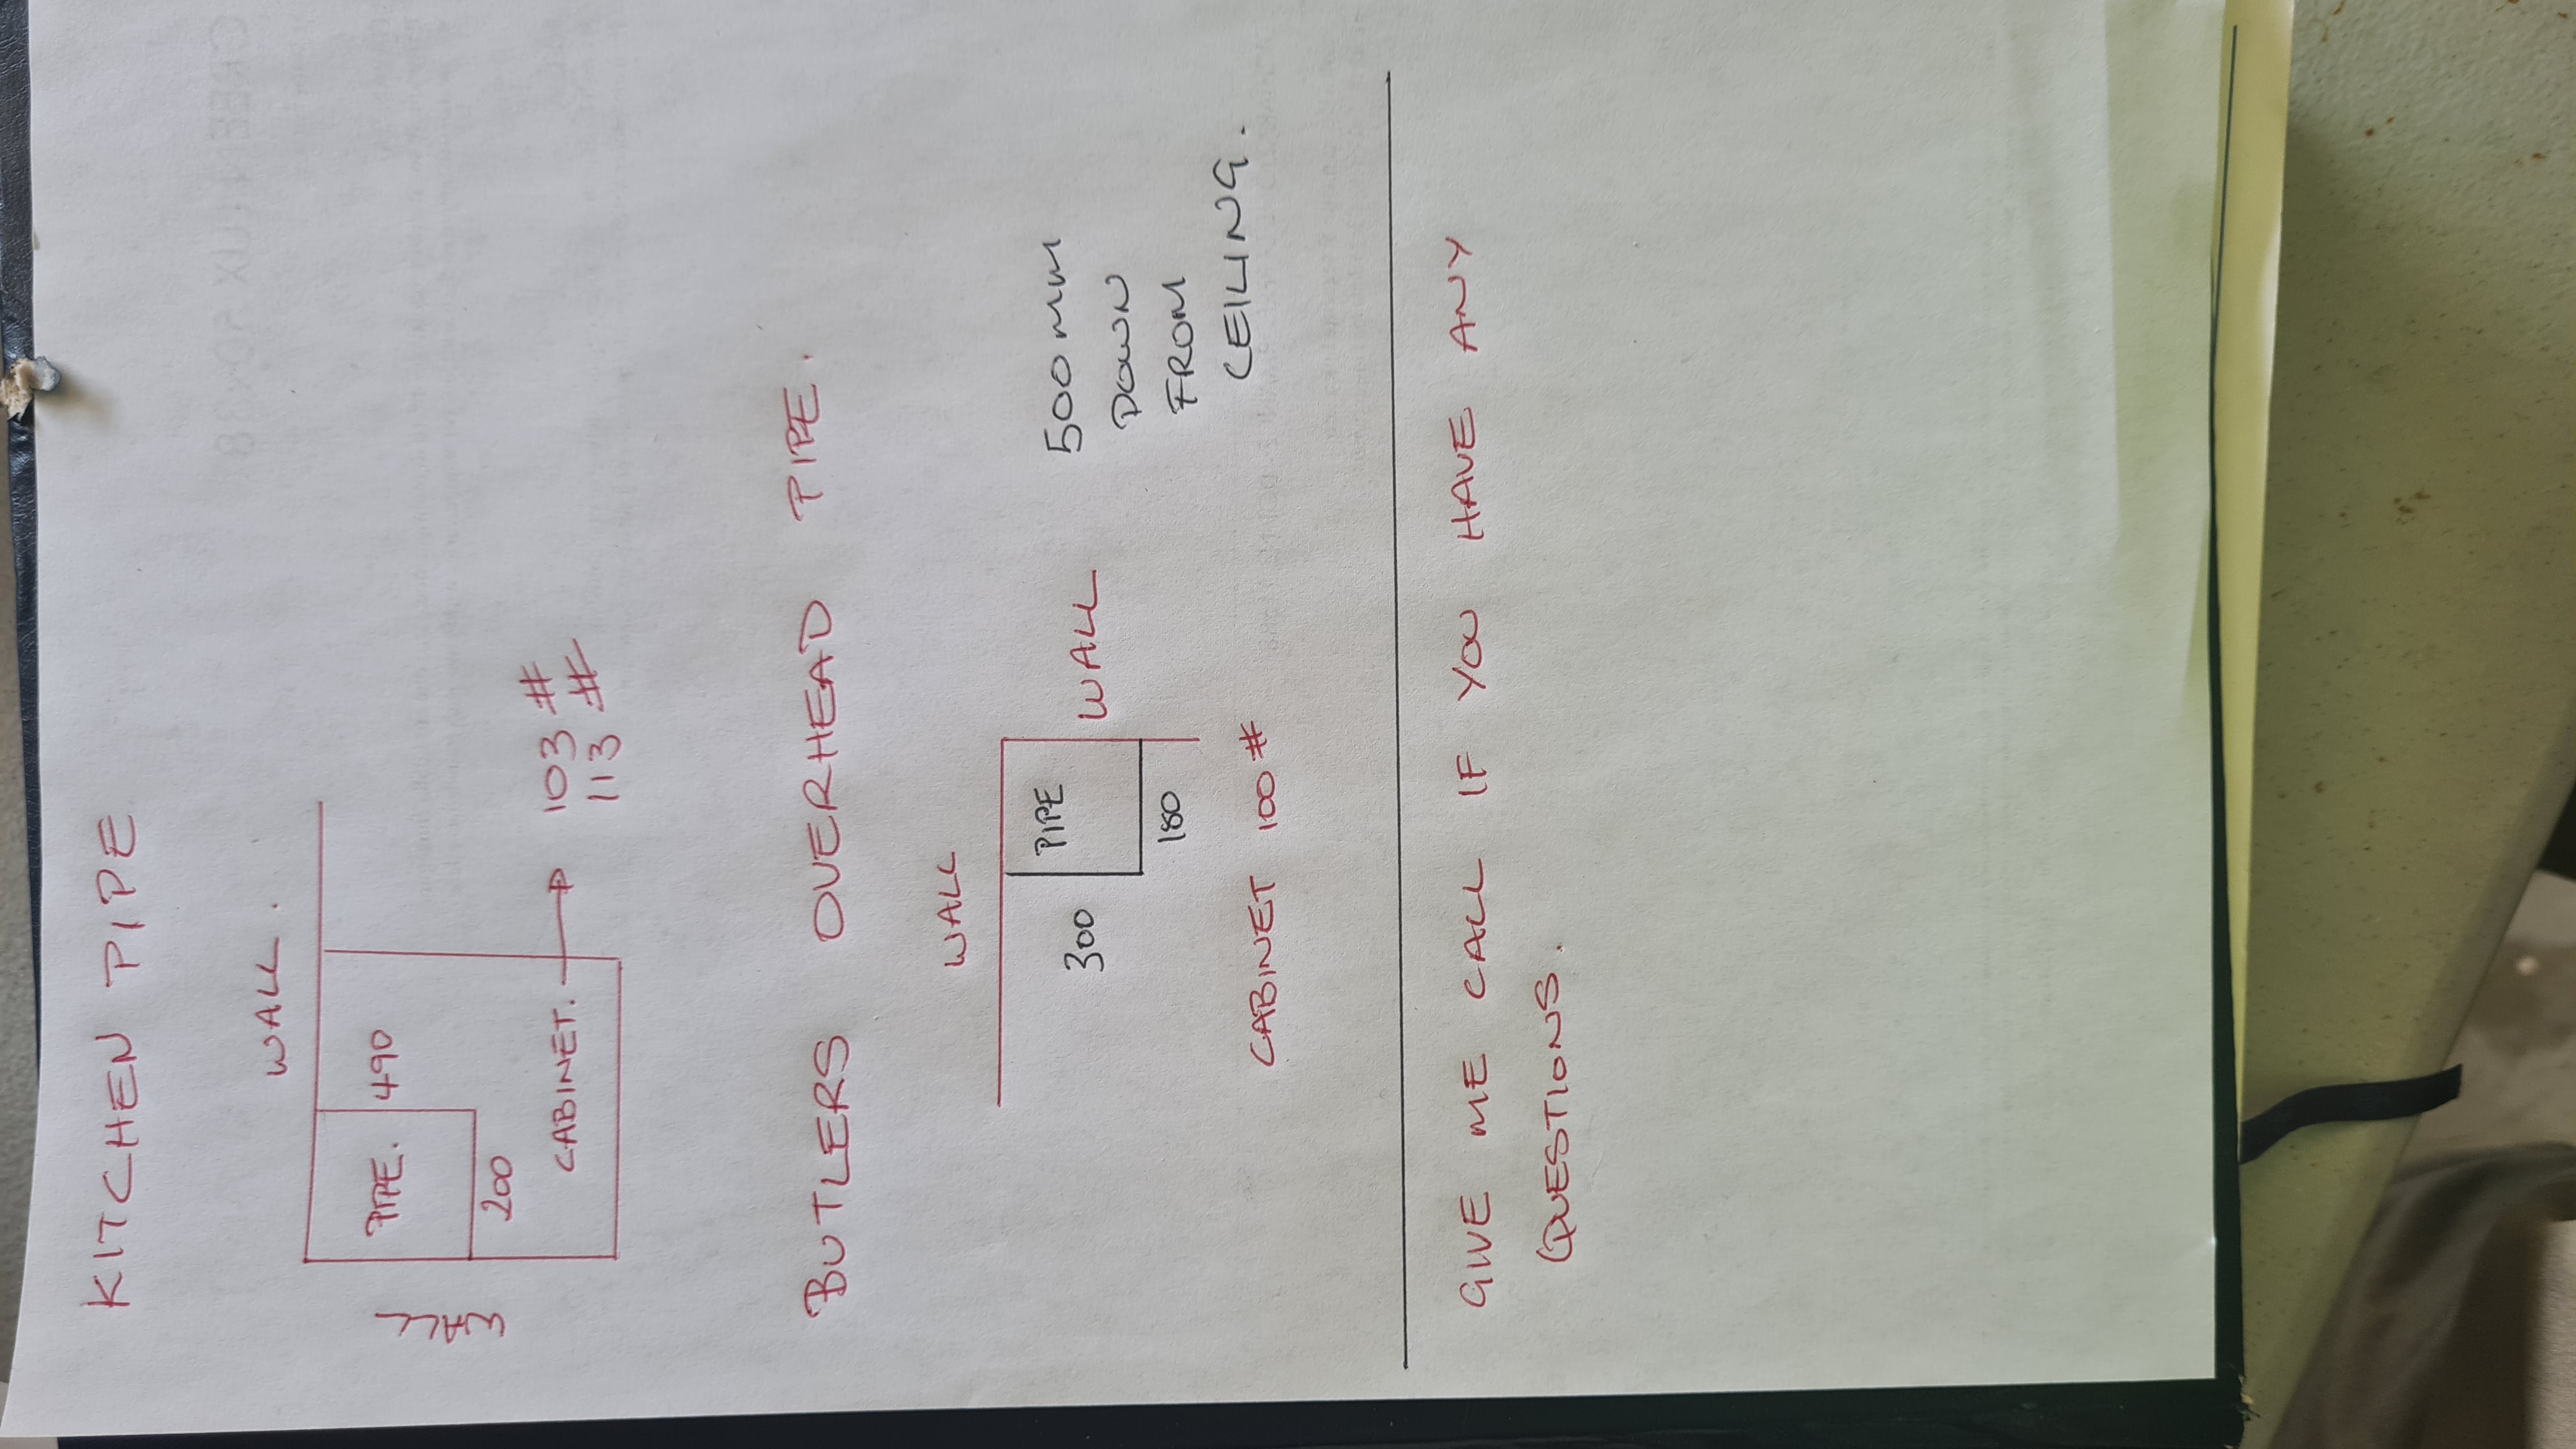 KITCHEN PIPE
WALL.
PIPE. 490
200
CABINET. → 103 #
113 #
BUTLERS OVERHEAD PIPE.
WALL
300 PIPE WALL
180
CABINET 100#
500mm
DOWN
FROM
CEILING.
GIVE ME CALL IF YOU HAVE ANY
QUESTIONS.